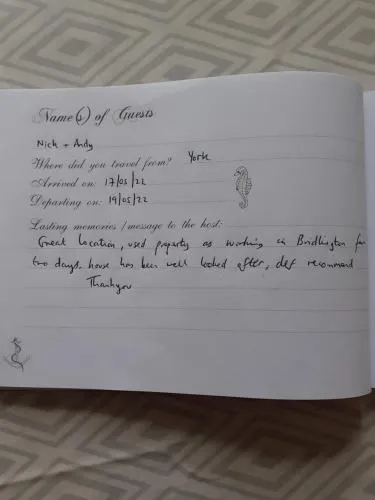 Name(s) of Guests
Nick + Andy
Where did you travel from? York
Arrived on: 17/05/22
Departing on: 19/05/22
Lasting memories / message to the host:
Great Location, used property as working in Bridlington for
two days. house has been well looked after, def recommend
Thankyou